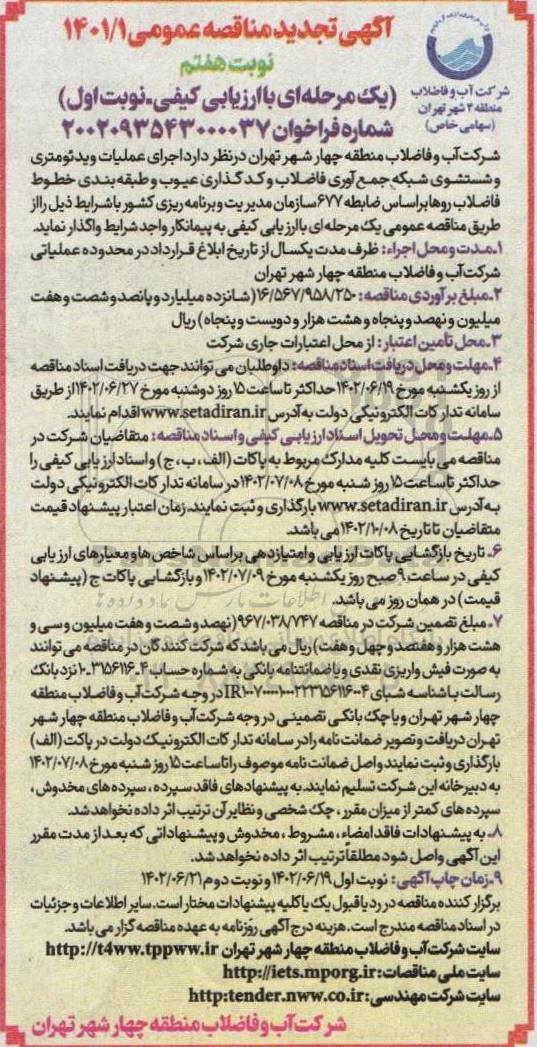 آگهی تجدید مناقصه عمومی ۱۴۰۱/۱
نوبت هفتم
(یک مرحله‌ای با ارزیابی کیفی-نوبت اول)
شماره فراخوان ۲۰۰۲۰۹۳۵۴۳۰۰۰۰۳۷
شرکت آب و فاضلاب
منطقه ۴ شهر تهران
(سهامی خاص)
شرکت آب و فاضلاب منطقه چهار شهر تهران در نظر دارد اجرای عملیات ویدئومتری
و شستشوی شبکه جمع آوری فاضلاب و کد گذاری عیوب و طبقه بندی خطوط
فاضلاب روها براساس ضابطه ۶۷۷ سازمان مدیریت و برنامه ریزی کشور با شرایط ذیل را از
طریق مناقصه عمومی یک مرحله ای با ارزیابی کیفی به پیمانکار واجد شرایط واگذار نماید.
۱-مدت و محل اجراء: ظرف مدت یکسال از تاریخ ابلاغ قرارداد در محدوده عملیاتی
شرکت آب و فاضلاب منطقه چهار شهر تهران
۲-مبلغ برآوردی مناقصه: ۱۶/۵۶۷/۹۵۸/۲۵۰ (شانزده میلیارد و پانصد و شصت و هفت
میلیون و نهصد و پنجاه و هشت هزار و دویست و پنجاه) ریال
۳-محل تامین اعتبار: از محل اعتبارات جاری شرکت
۴-مهلت و محل دریافت اسناد مناقصه: داوطلبان می توانند جهت دریافت اسناد مناقصه
از روز یکشنبه مورخ ۱۴۰۲/۰۶/۱۹ حداکثر تا ساعت ۱۵ روز دوشنبه مورخ ۱۴۰۲/۰۶/۲۷ از طریق
سامانه تدارکات الکترونیکی دولت به آدرس www.setadiran.ir اقدام نمایند.
۵-مهلت و محل تحویل اسناد ارزیابی کیفی و اسناد مناقصه: متقاضیان شرکت در
مناقصه می بایست کلیه مدارک مربوط به پاکات (الف، ب، ج) و اسناد ارزیابی کیفی را
حداکثر تا ساعت ۱۵ روز شنبه مورخ ۱۴۰۲/۰۷/۰۸ در سامانه تدارکات الکترونیکی دولت
به آدرس www.setadiran.ir بارگذاری و ثبت نمایند. زمان اعتبار پیشنهاد قیمت
متقاضیان تا تاریخ ۱۴۰۲/۱۰/۰۸ می باشد.
۶- تاریخ بازگشایی پاکات ارزیابی و امتیازدهی براساس شاخص ها و معیارهای ارزیابی
کیفی در ساعت ۹ صبح روز یکشنبه مورخ ۱۴۰۲/۰۷/۰۹ و بازگشایی پاکات ج (پیشنهاد
قیمت) در همان روز می باشد.
۷- مبلغ تضمین شرکت در مناقصه ۹۶۷/۰۳۸/۷۴۷ (نهصد و شصت و هفت میلیون و سی و
هشت هزار و هفتصد و چهل و هفت) ریال می باشد که شرکت کنندگان در مناقصه می توانند
به صورت فیش واریزی نقدی و یا ضمانتنامه بانکی به شماره حساب ۱۰-۳۱۵۶۱۱۶-۴ نزد بانک
رسالت با شناسه شبای در وجه شرکت آب و فاضلاب منطقه
چهار شهر تهران و یا چک بانکی تضمینی در وجه شرکت آب و فاضلاب منطقه چهار شهر
تهران دریافت و تصویر ضمانت نامه را در سامانه تدارکات الکترونیک دولت در پاکت (الف)
بارگذاری و ثبت نمایند و اصل ضمانت نامه موصوف را تا ساعت ۱۵ روز شنبه مورخ ۱۴۰۲/۰۷/۰۸
به دبیرخانه این شرکت تسلیم نمایند. به پیشنهادهای فاقد سپرده، سپرده های مخدوش،
سپرده های کمتر از میزان مقرر، چک شخصی و نظایر آن ترتیب اثر داده نخواهد شد.
۸- به پیشنهادات فاقد امضاء، مشروط، مخدوش و پیشنهاداتی که بعد از مدت مقرر
این آگهی واصل شود مطلقاً ترتیب اثر داده نخواهد شد.
۹-زمان چاپ آگهی: نوبت اول ۱۴۰۲/۰۶/۱۹ و نوبت دوم ۱۴۰۲/۰۶/۲۱
برگزار کننده مناقصه در رد یا قبول یک یا کلیه پیشنهادات مختار است. سایر اطلاعات و جزئیات
در اسناد مناقصه مندرج است. هزینه درج آگهی روزنامه به عهده مناقصه گزار می باشد.
سایت شرکت آب و فاضلاب منطقه چهار شهر تهران http://t4ww.tppww.ir
سایت ملی مناقصات: http://iets.mporg.ir
سایت شرکت مهندسی: http:tender.nww.co.ir
شرکت آب و فاضلاب منطقه چهار شهر تهران